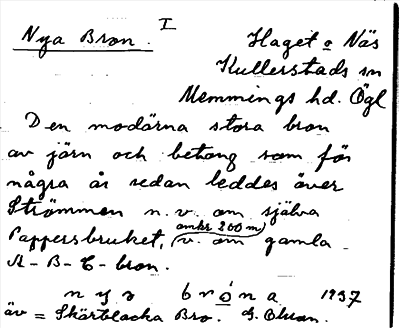 Nya Bron. I
Haget o Näs
Kullerstads sn
Memmings hd. Ögl
Den modärna stora bron
av järn och betong som för
några år sedan leddes över
Strömmen n.v. om själva
Pappersbruket, (omkr 200 m) v. om gamla
A-B-C-bron.
nya bróna 1937
äv = Skärblacka Bro.